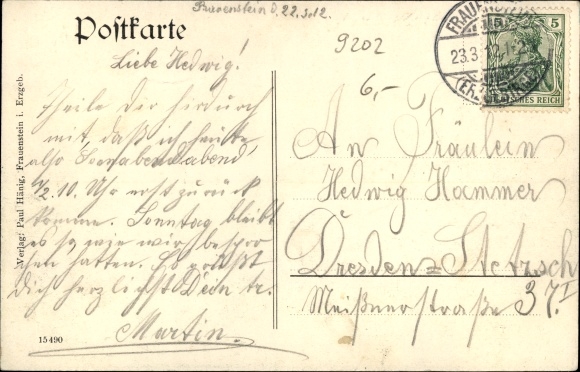 Frauenstein d. 22. Juli 12.
Postkarte
9202
6,-
FRAUENSTEIN
23.3.12.
(Erzgeb.)
5 5
DEUTSCHES REICH
Liebe Hedwig!
Theile Dir hierdurch
mit, daß ich heute
also Sonnabend abend
1/2 10. Uhr erst zurück
komme. Sonntag bleibt
es so wie wir bespro-
chen hatten. Es grüßt
Dich herzlichst Dein tr.
Martin.
An Fräulein
Hedwig Hammer
Dresden=Stetzsch
Meißnerstraße 37.I
Verlag: Paul Hänig, Frauenstein i. Erzgeb.
15490